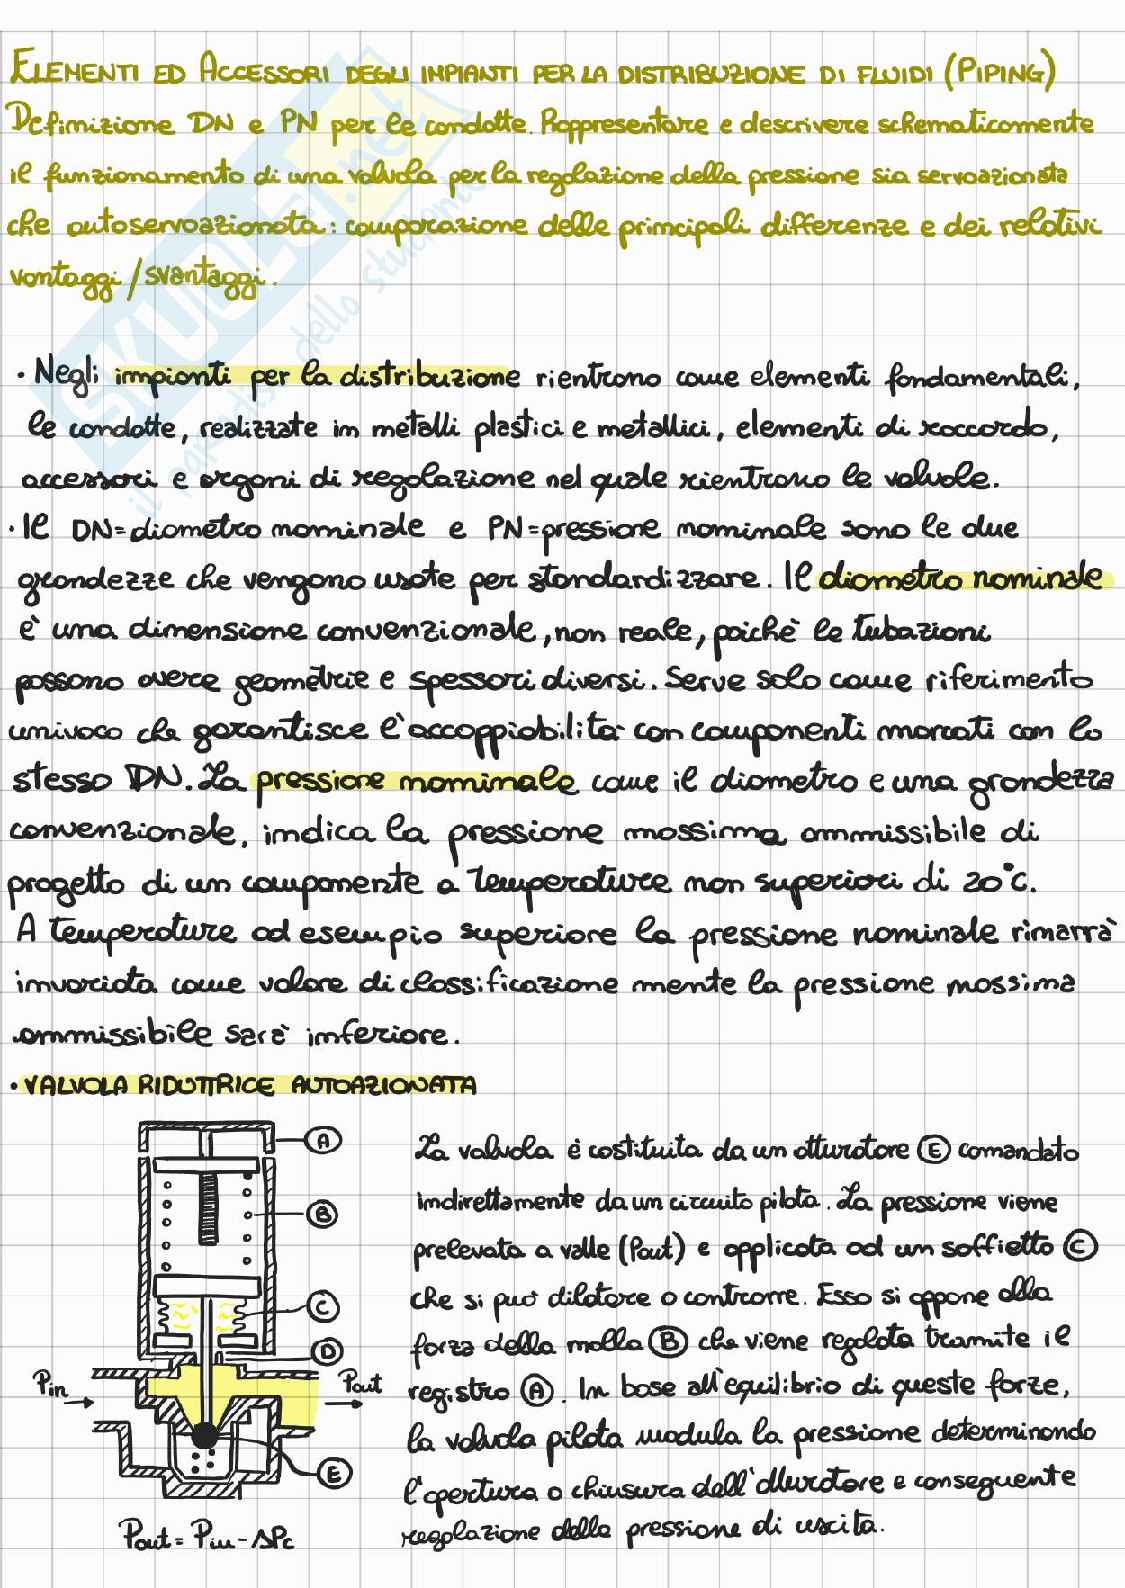 ELEMENTI ED ACCESSORI DEGLI IMPIANTI PER LA DISTRIBUZIONE DI FLUIDI (PIPING)
Definizione DN e PN per le condotte. Rappresentare e descrivere schematicamente
il funzionamento di una valvola per la regolazione della pressione sia servoazionata
che autoservoazionata: comparazione delle principali differenze e dei relativi
vantaggi/svantaggi.
SKUOLA.net
il paradiso dello studente
· Negli impianti per la distribuzione rientrano come elementi fondamentali,
le condotte, realizzate in metalli plastici e metallici, elementi di raccordo,
accessori e organi di regolazione nel quale rientrano le valvole.
· Il DN=diametro nominale e PN=pressione nominale sono le due
grandezze che vengono usate per standardizzare. Il diametro nominale
è una dimensione convenzionale, non reale, poichè le tubazioni
possono avere geometrie e spessori diversi. Serve solo come riferimento
univoco che garantisce l'accoppiabilità con componenti marcati con lo
stesso DN. La pressione nominale come il diametro e una grandezza
convenzionale, indica la pressione massima ammissibile di
progetto di un componente a temperature non superiori di 20°C.
A temperature ad esempio superiore la pressione nominale rimarrà
invariata come valore di classificazione mente la pressione massima
ammissibile sarà inferiore.
· VALVOLA RIDUTTRICE AUTOAZIONATA
A
B
C
D
Pin
Pout
E
Pout = Pin - ΔPc
La valvola è costituita da un otturatore E comandato
indirettamente da un circuito pilota. La pressione viene
prelevata a valle (Pout) e applicata ad un soffietto C
che si può dilatare o contrarre. Esso si oppone alla
forza della molla B che viene regolata tramite il
registro A. In base all'equilibrio di queste forze,
la valvola pilota modula la pressione determinando
l'apertura o chiusura dell'otturatore e conseguente
regolazione della pressione di uscita.